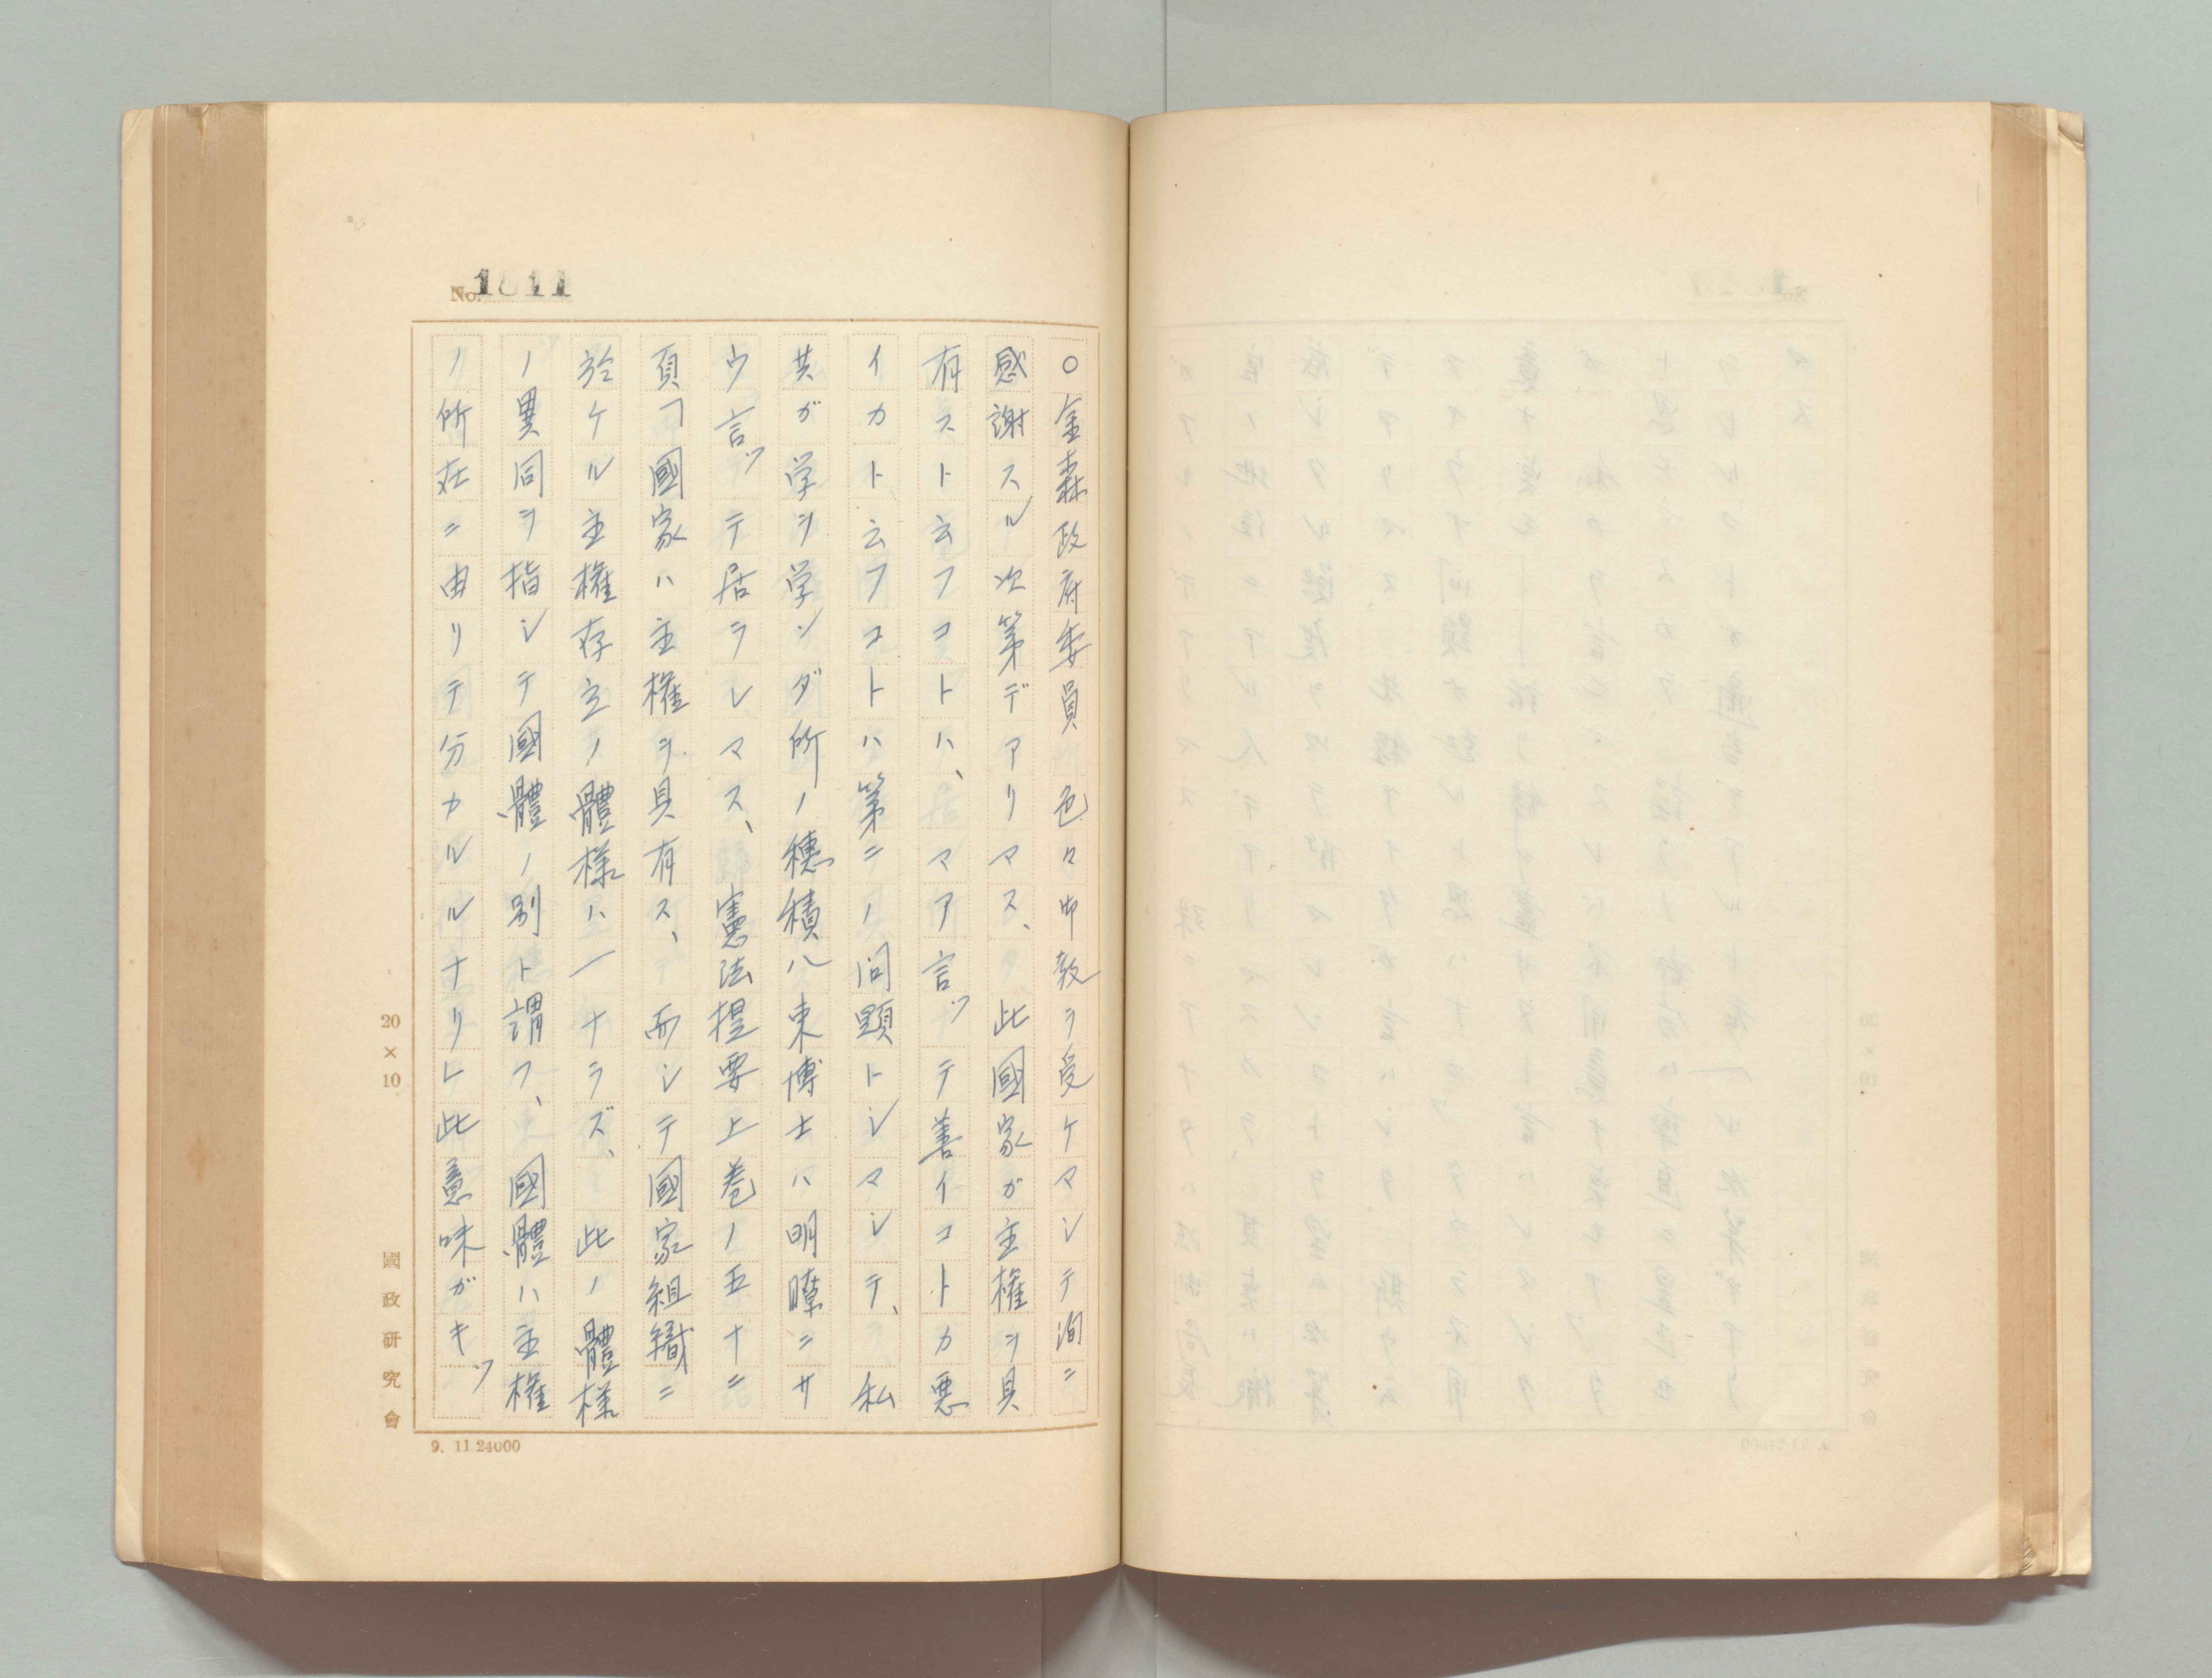 No. 1011
○金森政府委員　色々御教ヲ受ケマシテ洵ニ
感謝スル次第デアリマス、此國家ガ主權ヲ具
有スト云フコトハ、マア言ッテ善イコトカ悪
イカト云フコトハ第二ノ問題トシマシテ、私
共ガ学ヲ学ンダ所ノ穗積八束博士ハ明瞭ニサ
ウ言ッテ居ラレマス、憲法提要上巻ノ五十二
頁「國家ハ主權ヲ具有ス、而シテ國家組織ニ
於ケル主權存立ノ體様ハ一ナラズ、此ノ體様
ノ異同ヲ指シテ國體ノ別ト謂フ、國體ハ主權
ノ所在ニ由リテ分カルルナリ」此意味ガキッ
20×10
國政研究會
9. 11 24000